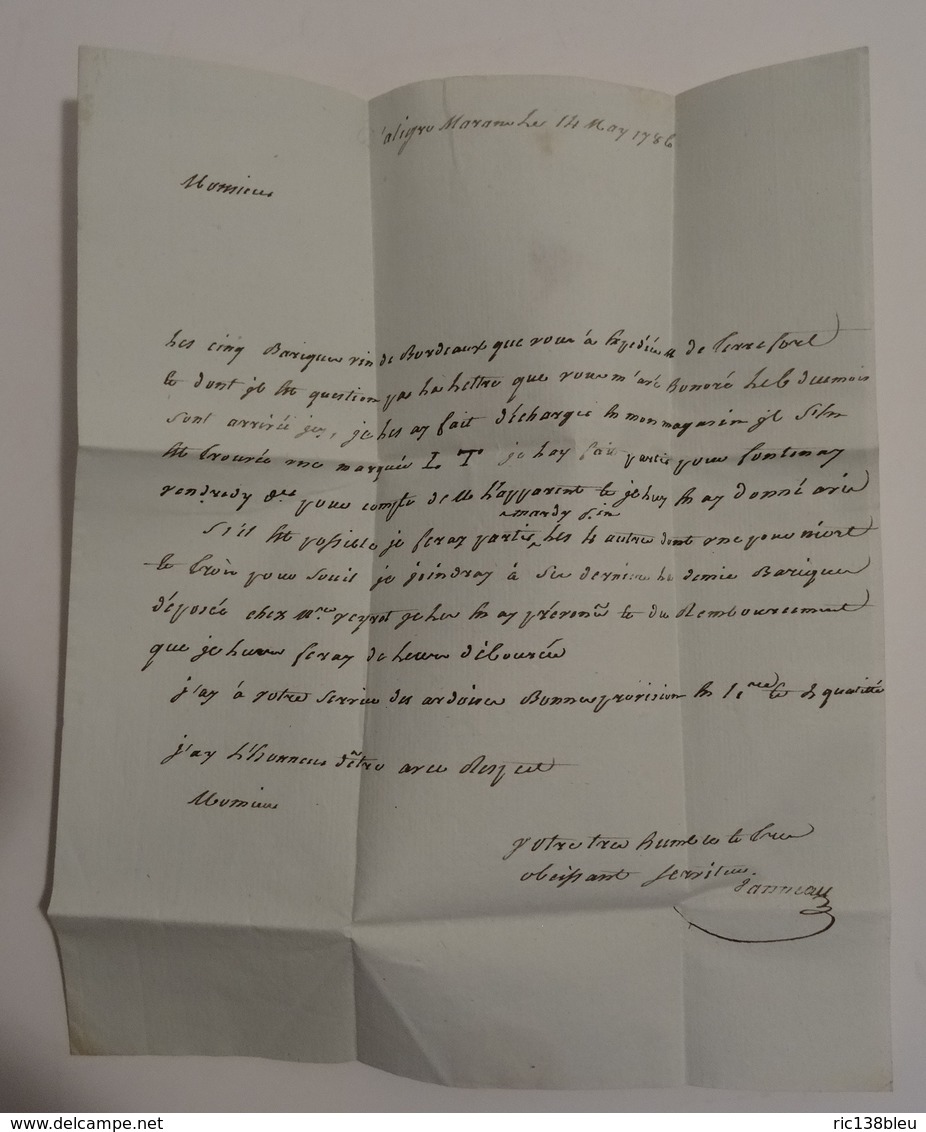 D'aligre Marans Le 14 May 1786
Monsieur
Les cinq Bariques vin de Bordeaux que vous à Expediées Mr de Terrefort
Et dont jl Est question par La Lettre que vous m'avé honoré Le 6 du mois
sont arrivée jcy, je Les ay fait décharger En mon magasin jl s'En
Est trouvée une marquée L T je Lay fait partir pour fontenay
vendredy pour compte de Lapparent Et je Luy En ay donné avis
s'il Est possible je feray partir mardy Les 4 autres dont une pour niort
Et trois pour je joindray à Ses derniers La demie Barique
déposée chez Mrs veyrat je Les En ay prévenus Et du Remboursement
que je Leurs feray de Leurs déboursés
j'ay à votre service des ardoises Bonne provision En 1ere Et 2e quallité
j'ay L'honneur d'être avec Respect
Monsieur
Votre tres humble Et tres
obeissant serviteur
Janneau
delcampe.net
ric138bleu